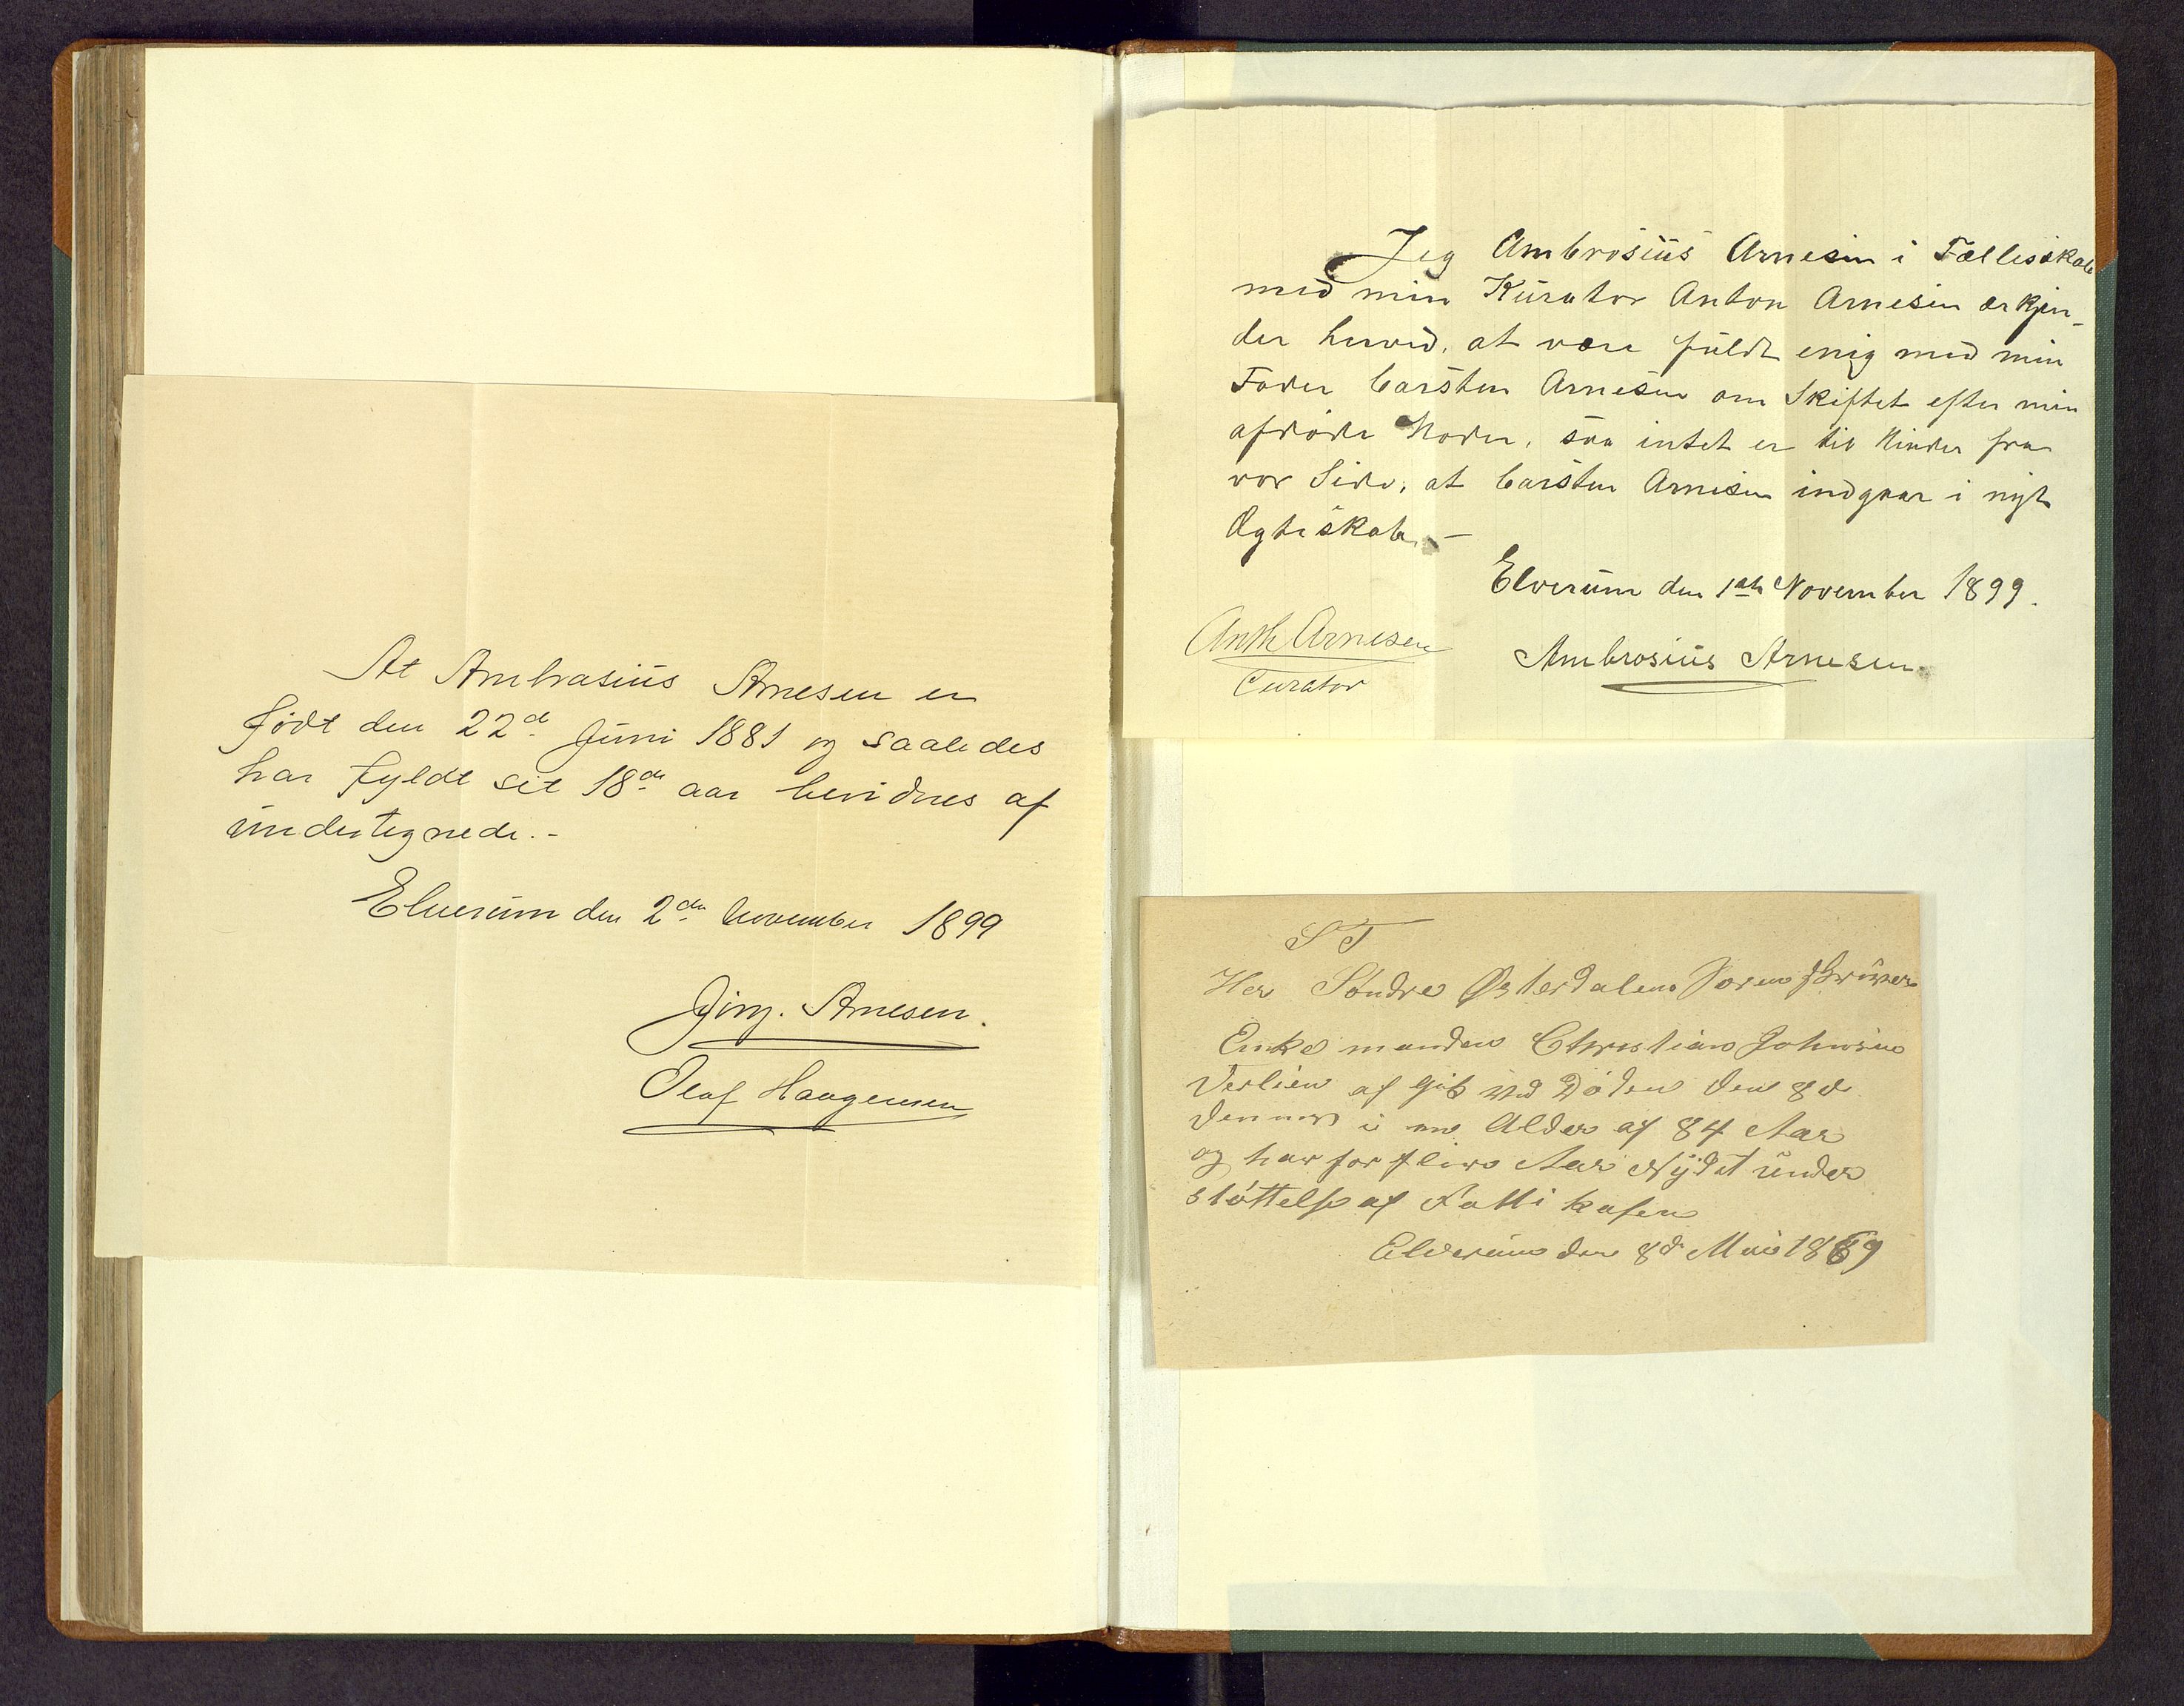 At Ambrosius Arnesen er
født den 22d Juni 1881 og saaledes
har fyldt sit 18de aar bevidnes af
undertegnede.-
Elverum den 2den November 1899
Jørg. Arnesen.
Olaf Haagensen
Jeg Ambrosius Arnesen i Fællesskab
med min Kurator Anton Arnesen erkjen-
der herved, at være fuldt enig med min
Fader Carsten Arnesen om Skiftet efter min
afdøde Moder, saa intet er til Hinder fra
vor Side, at Carsten Arnesen indgaar i nyt
Ægteskab. -
Elverum den 1ste November 1899.
Anth Arnesen
Curator
Ambrosius Arnesen
S T
Her Søndre Østerdalens Sorenskriver
Enke manden Christian Johnsen
af Gik ved Døden den 8de
dennes i en Alder af 84 Aar
og har for flere Aar Nydt under
støttelse af Fatti kasen
Elverum den 8de Mai 1869